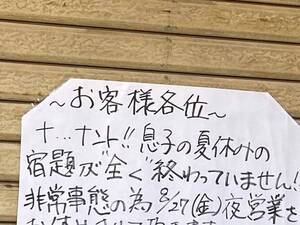 ～お客様各位～
ナ…ナント!!息子の夏休みの
宿題が"全く"終わっていません!
非常事態の為8/27(金)夜営業を